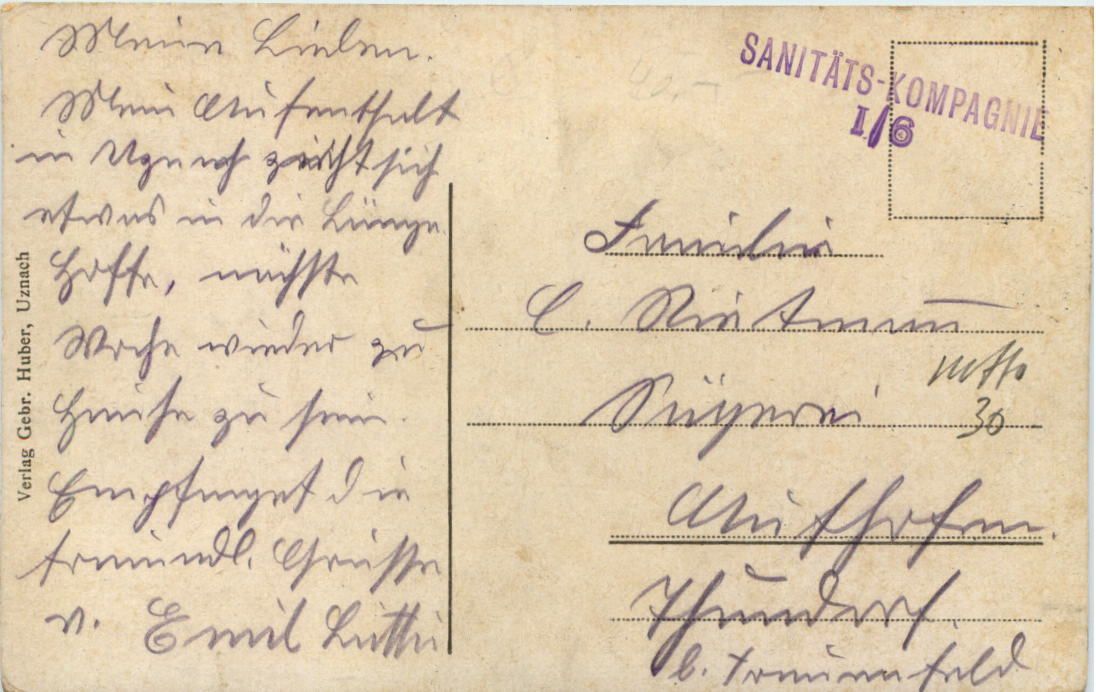 Meine Lieben.
Mein Aufenthalt
in Uznach zieht sich
etwas in die Länge.
Hoffe, nächste
Woche wieder zu
Hause zu sein.
Empfanget die
freundl. Grüsse
v. Emil Lüthi
Verlag Gebr. Huber, Uznach
SANITÄTS-KOMPAGNIE
I/6
Familie
C. Rietmann
Sägerei
netto
30
Aufhofen.
Thundorf.
b. Frauenfeld